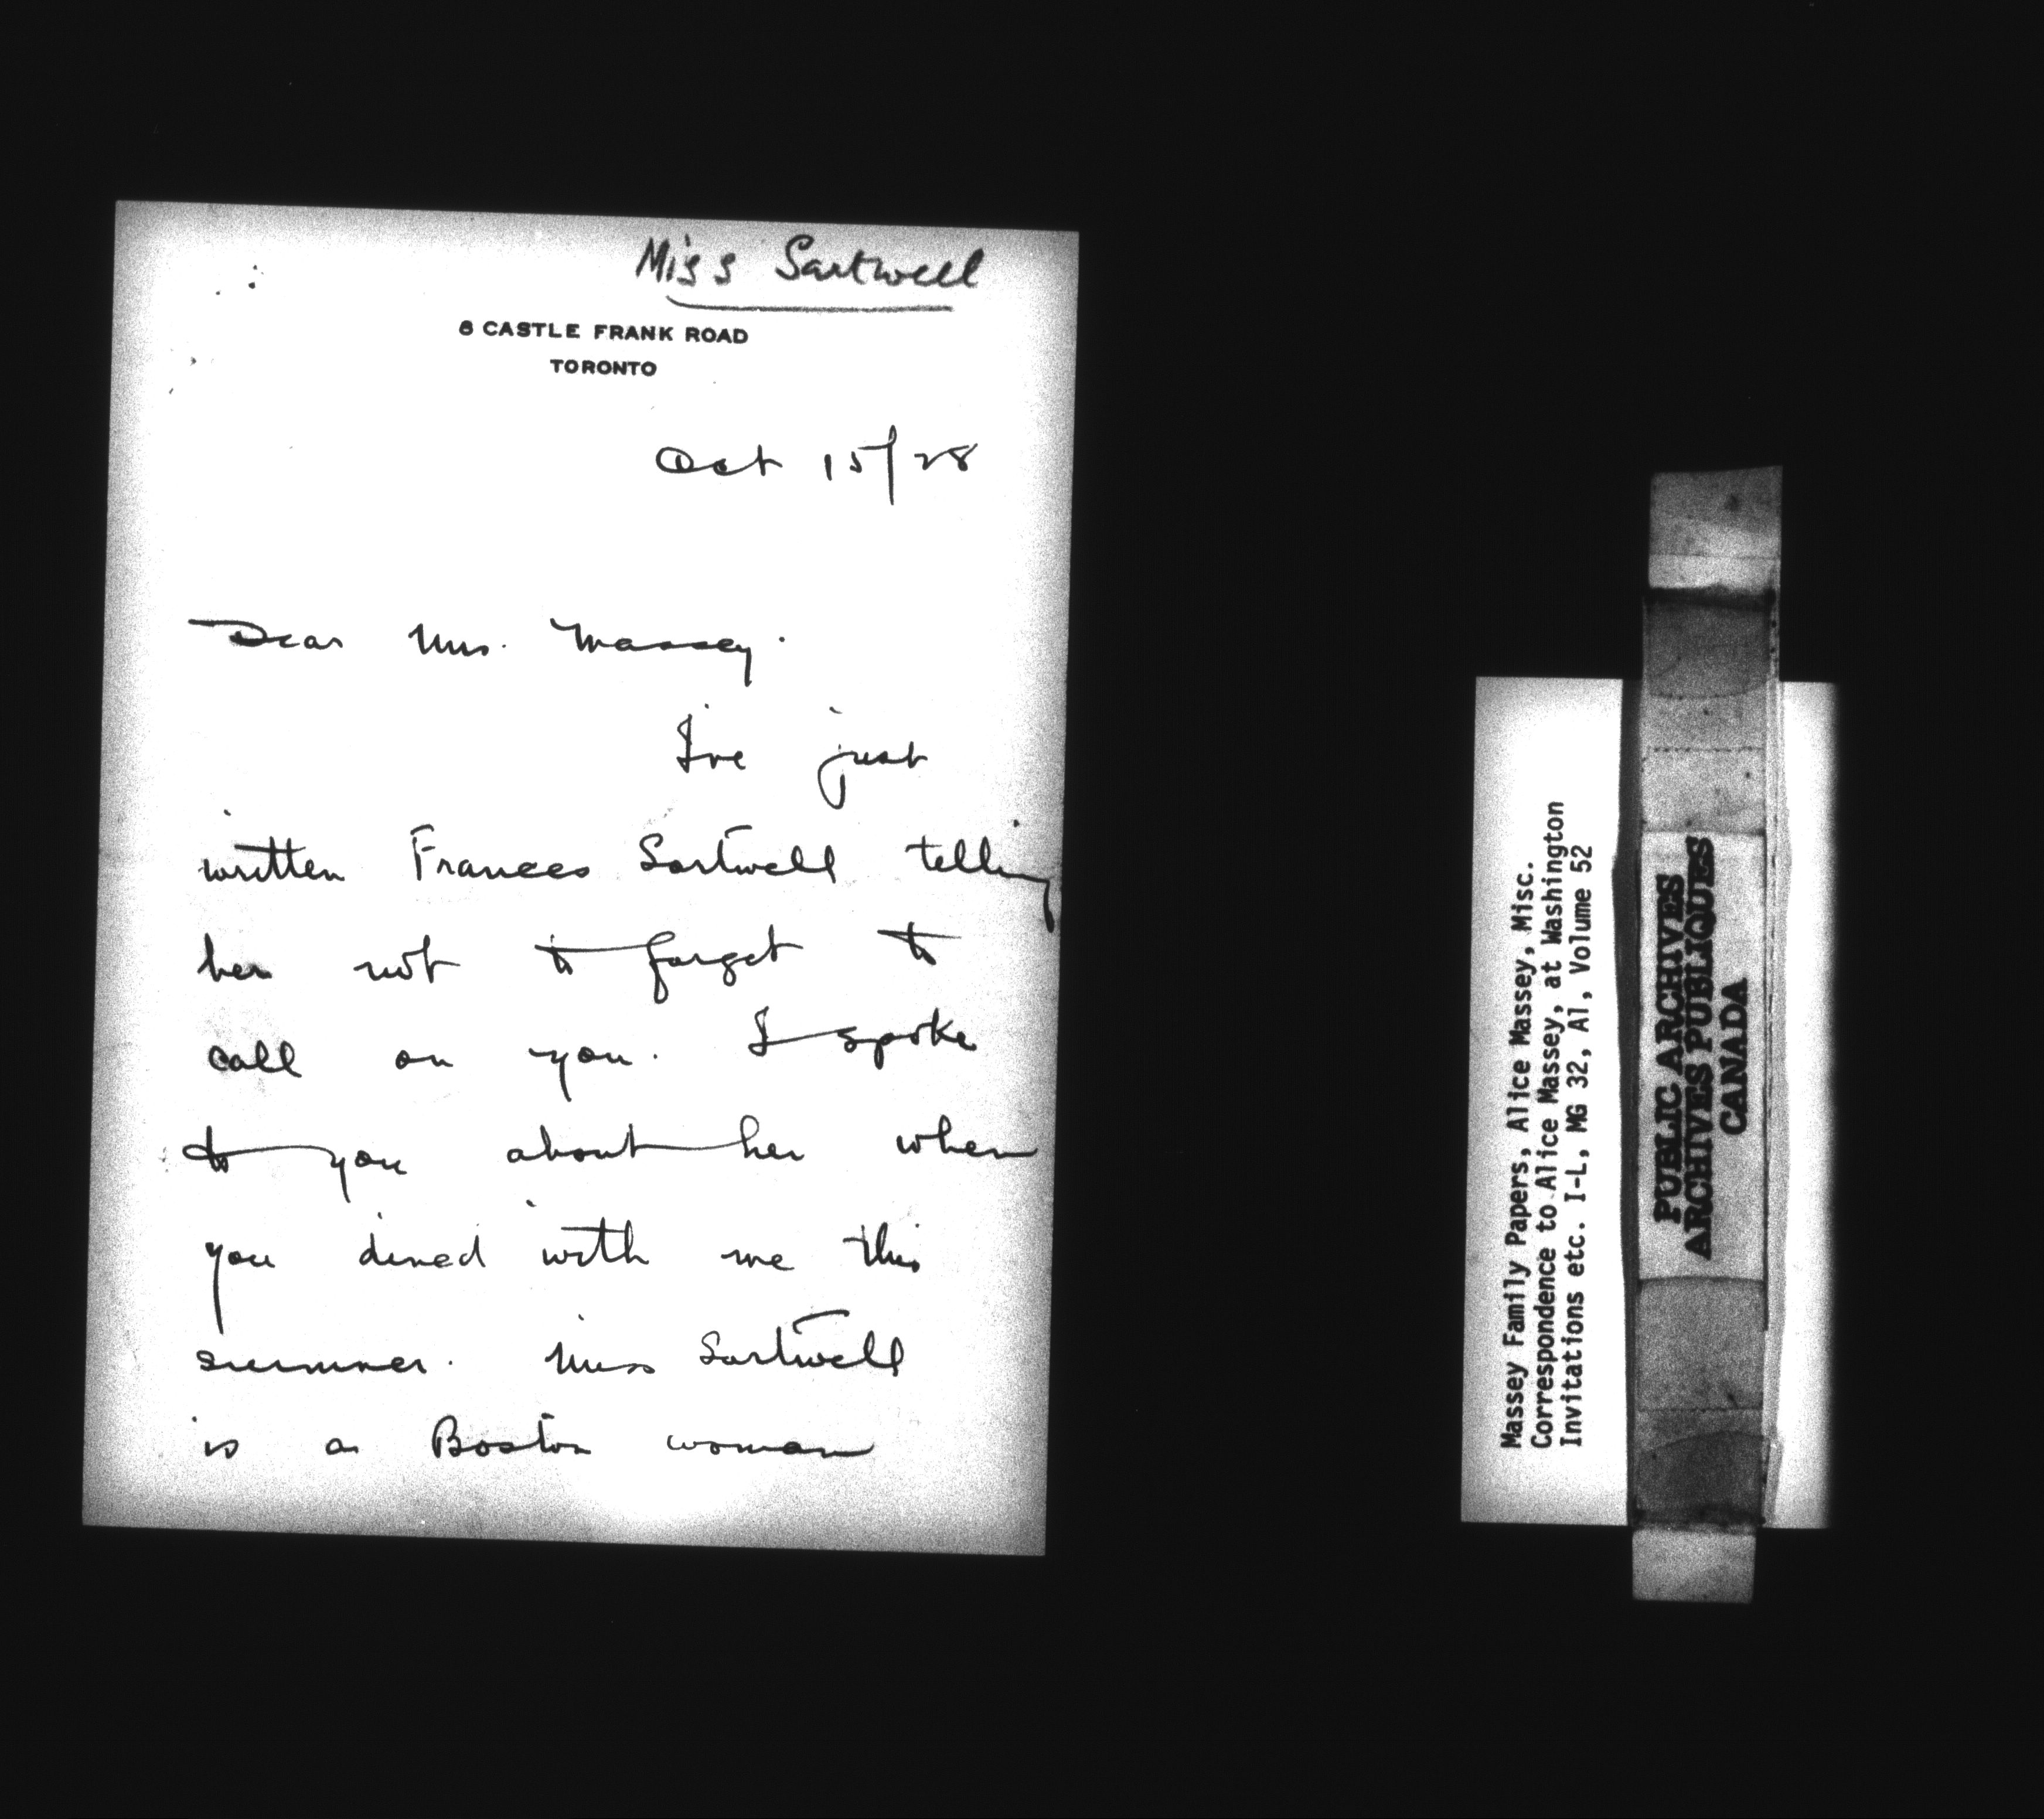 Miss Sartwell
6 CASTLE FRANK ROAD
TORONTO
Oct 15/28
Dear Mrs. Massey.
I've just
written Frances Sartwell telling
her not to forget to
call on you. I spoke
to you about her when
you dined with me this
summer. Miss Sartwell
is a Boston woman
Massey Family Papers, Alice Massey, Misc.
Correspondence to Alice Massey, at Washington
Invitations etc. I-L, MG 32, A1, Volume 52
PUBLIC ARCHIVES
ARCHIVES PUBLIQUES
CANADA